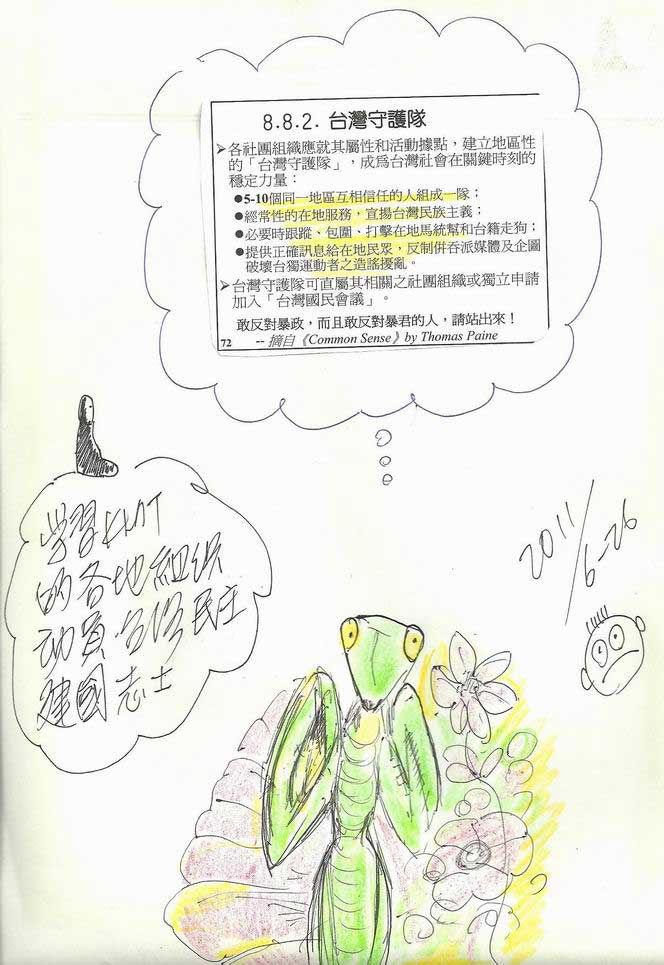 8.8.2. 台灣守護隊
➢各社團組織應就其屬性和活動據點，建立地區性
的「台灣守護隊」，成為台灣社會在關鍵時刻的
穩定力量：
●5-10個同一地區互相信任的人組成一隊；
●經常性的在地服務，宣揚台灣民族主義；
●必要時跟蹤、包圍、打擊在地馬統幫和台籍走狗；
●提供正確訊息給在地民眾，反制併吞派媒體及企圖
破壞台獨運動者之造謠擾亂。
➢台灣守護隊可直屬其相關之社團組織或獨立申請
加入「台灣國民會議」。
敢反對暴政，而且敢反對暴君的人，請站出來！
72 -- 摘自《Common Sense》by Thomas Paine
学習KMT
的各地組織
動員 民主
建國志士
2011/6-26